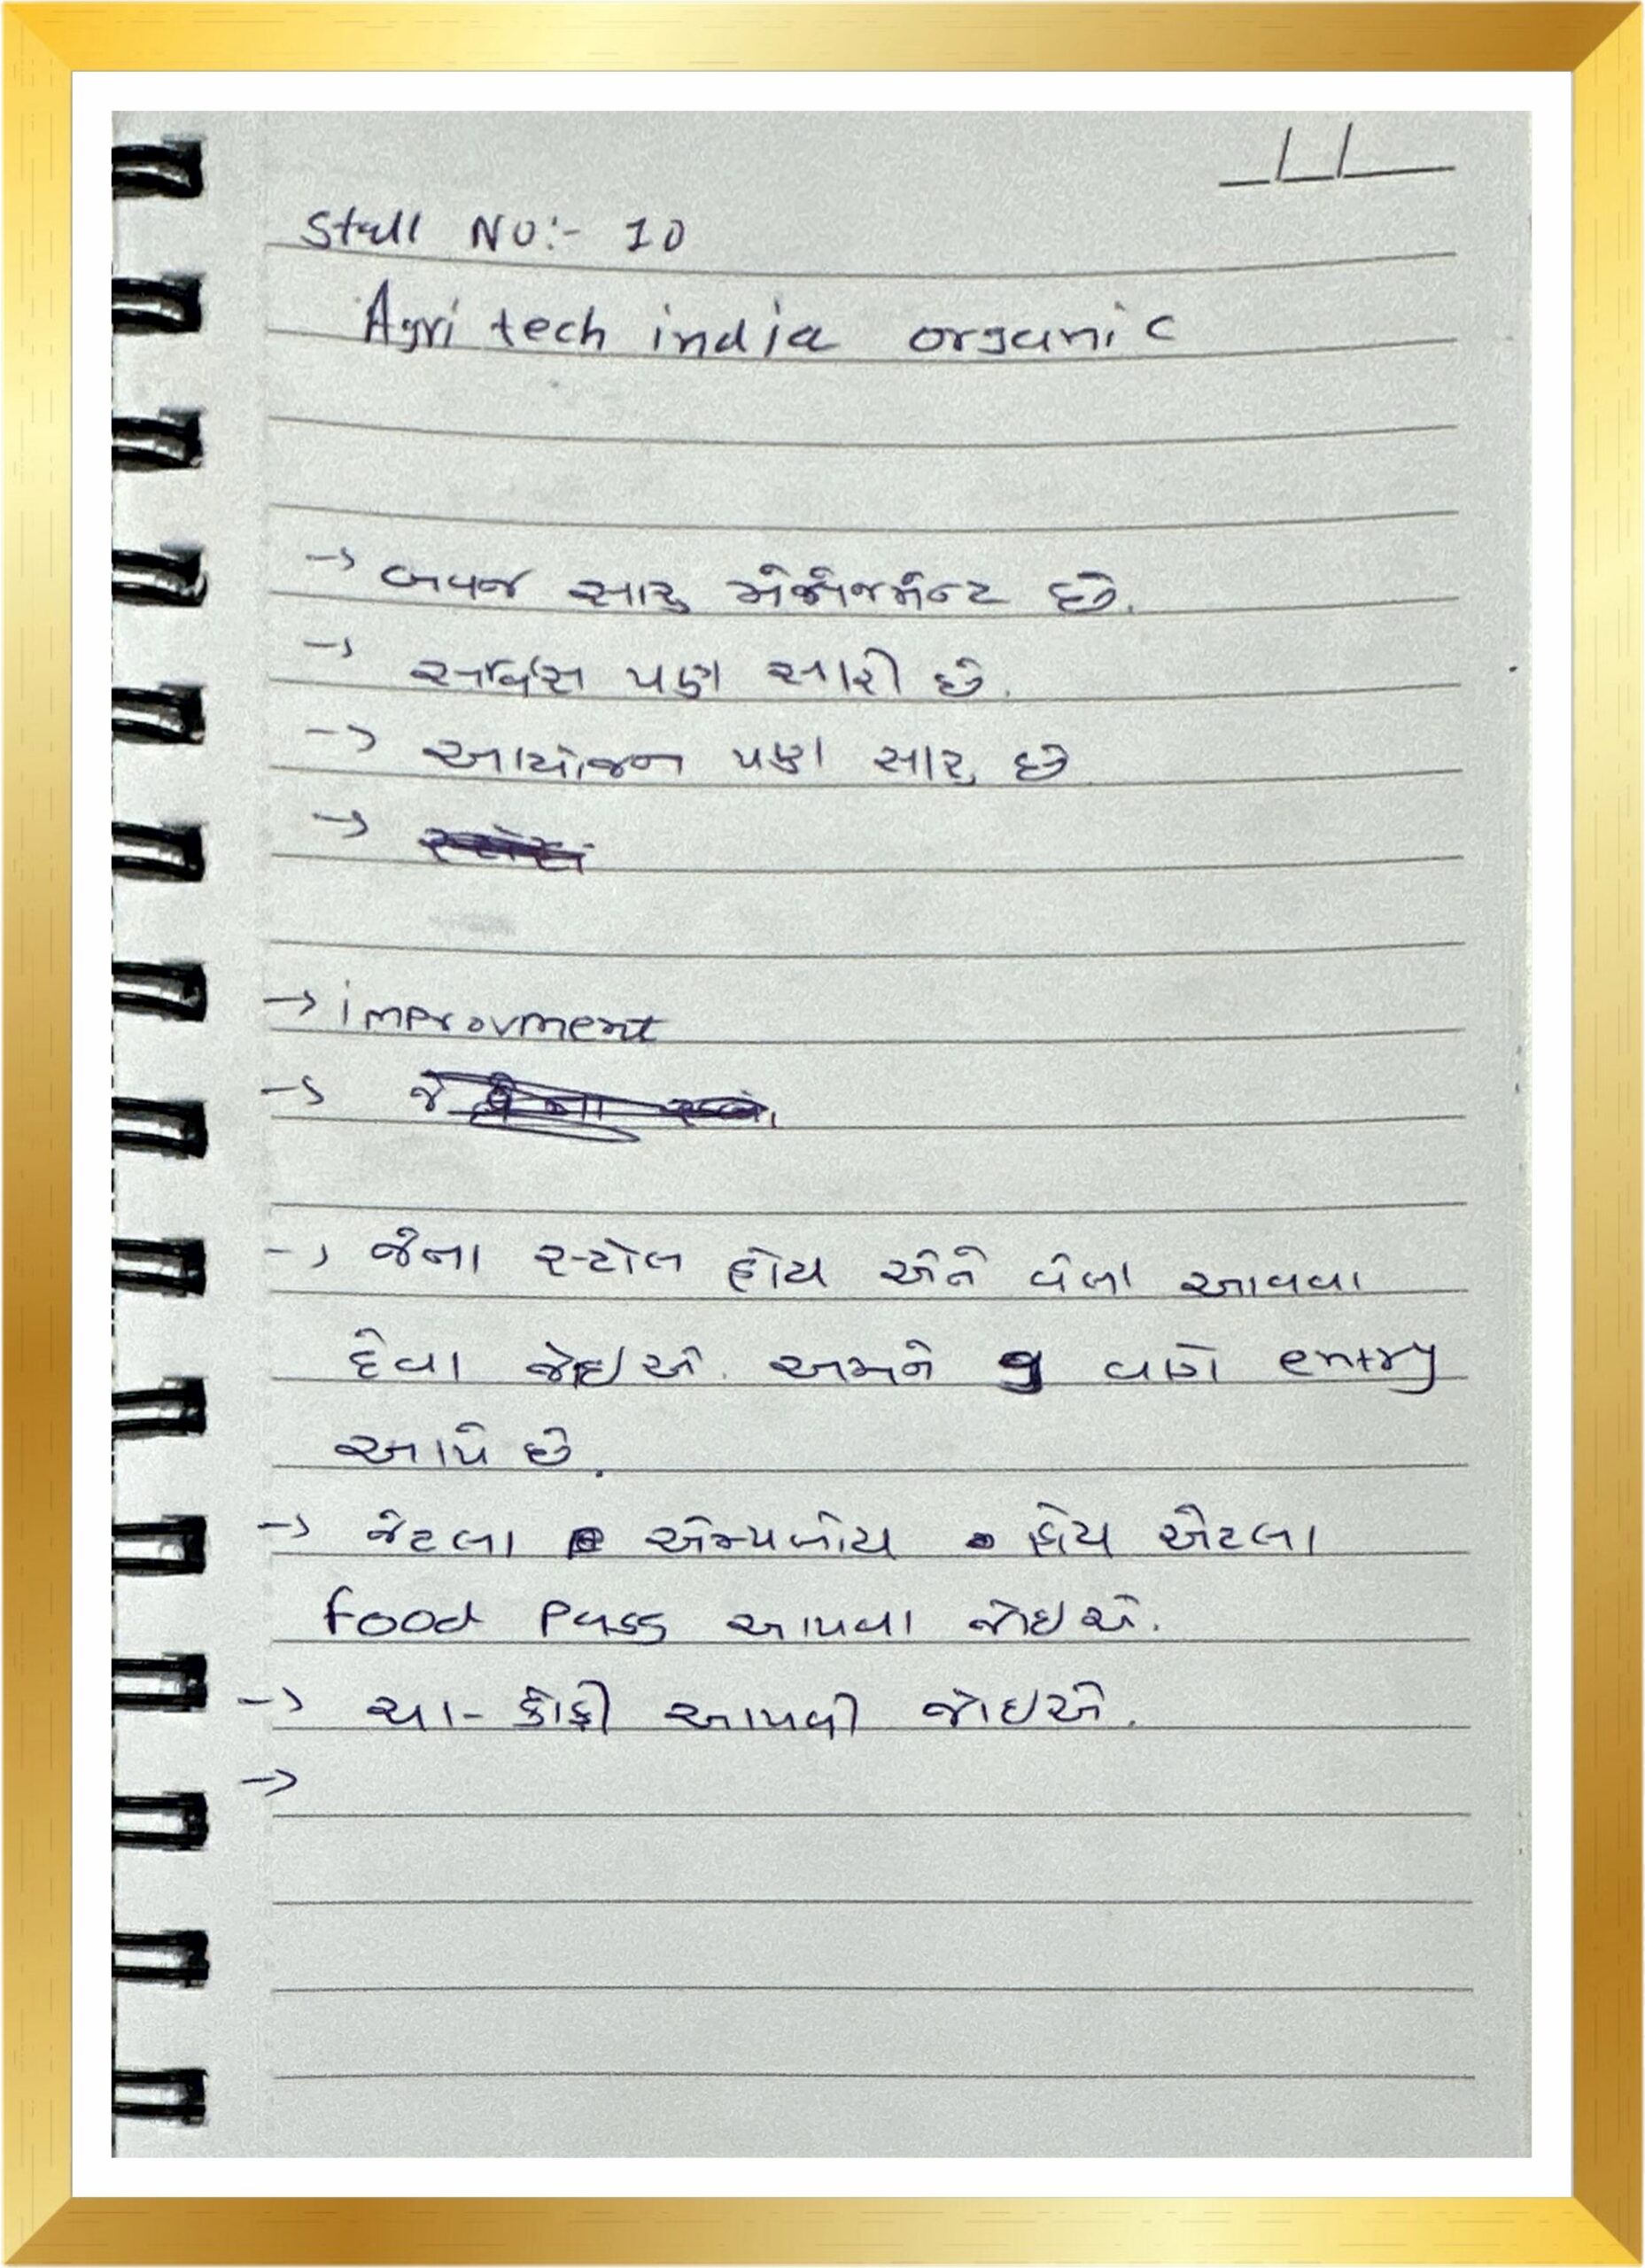 Stall No:- 10
Agri tech india organic
→ બવજ સારુ મેનેજમેન્ટ છે.
→ સર્વિસ પણ સારી છે.
→ આયોજન પણ સારુ છે
→
→ improvment
→ જે
→ જેના સ્ટોલ હોય એને વેલા આવવા
દેવા જોઇએ. અમને 9 વાગે entry
આપે છે.
→ જેટલા એમ્પલોય હોય એટલા
food Pass આપવા જોઇએ.
→ ચા- કોફી આપવી જોઇએ.
→